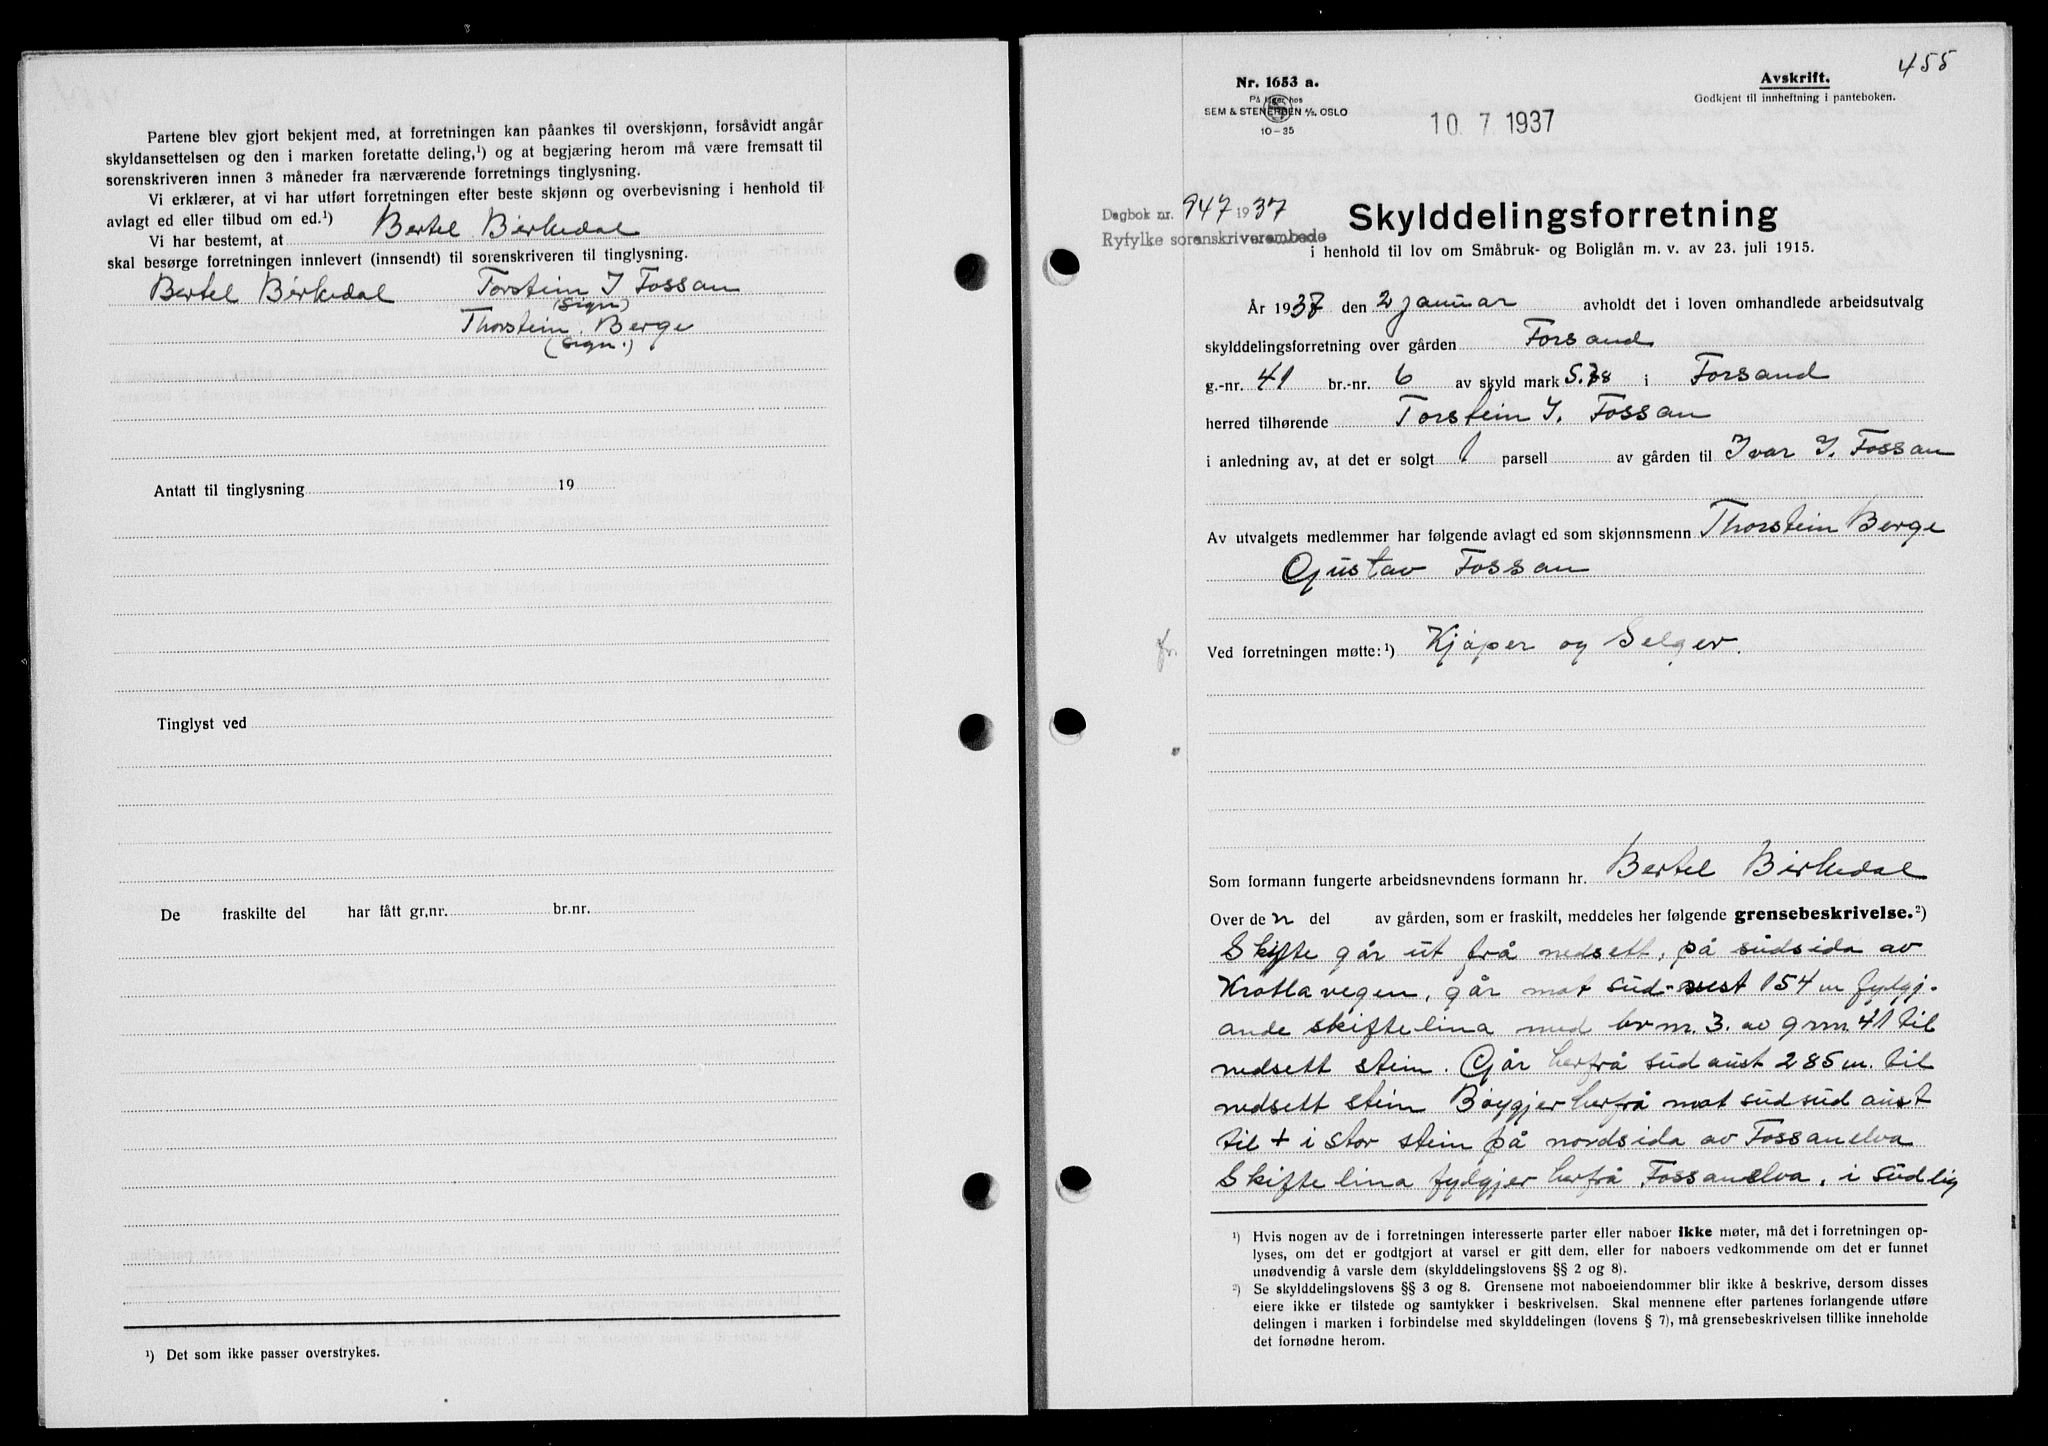 Partene blev gjort bekjent med, at forretningen kan påankes til overskjønn, forsåvidt angår
skyldansettelsen og den i marken foretatte deling,¹) og at begjæring herom må være fremsatt til
sorenskriveren innen 3 måneder fra nærværende forretnings tinglysning.
Vi erklærer, at vi har utført forretningen efter beste skjønn og overbevisning i henhold til
avlagt ed eller tilbud om ed.¹)
Vi har bestemt, at Bertel Birkedal
skal besørge forretningen innlevert (innsendt) til sorenskriveren til tinglysning.
Bertel Birkedal Torstein I Fossan
(sign)
Thorstein Berge
(sign.)
Antatt til tinglysning 19
Tinglyst ved
De fraskilte del har fått gr.nr. br.nr.
¹) Det som ikke passer overstrykes.
455
Nr. 1653 a.
På lager hos
SEM & STENERSEN A/S, OSLO
10-35
Avskrift.
Godkjent til innheftning i panteboken.
10 7 1937
Dagbok nr. 947 1937
Ryfylke sorenskriverembede
Skylddelingsforretning
i henhold til lov om Småbruk- og Boliglån m. v. av 23. juli 1915.
År 1937 den 2 januar avholdt det i loven omhandlede arbeidsutvalg
skylddelingsforretning over gården Forsand
g.-nr. 41 br.-nr. 6 av skyld mark 5.78 i Forsand
herred tilhørende Torstein I. Fossan
i anledning av, at det er solgt 1 parsell av gården til Ivar I. Fossan
Av utvalgets medlemmer har følgende avlagt ed som skjønnsmenn Thorstein Berge
Gustav Fossan
fr.
Ved forretningen møtte:¹) Kjøper og Selger.
Som formann fungerte arbeidsnevndens formann hr. Bertel Birkedal
Over den del av gården, som er fraskilt, meddeles her følgende grensebeskrivelse.²)
Skifte går ut frå nedsett, på sudsida av
Krottavegen, går mot sud-aust 154 m fylgj-
ande skiftelina med br nr. 3. av g nr. 41 til
nedsett stein. Går herfrå sudaust 285 m. til
nedsett stein Boygjer herfrå mot sudsudaust
til + i stor stein på nordsida av Fossanelva
Skiftelina fylgjer herfrå Fossanelva, i sudlig
¹) Hvis nogen av de i forretningen interesserte parter eller naboer ikke møter, må det i forretningen op-
lyses, om det er godtgjort at varsel er gitt dem, eller for naboers vedkommende om det er funnet
unødvendig å varsle dem (skylddelingslovens §§ 2 og 8).
²) Se skylddelingslovens §§ 3 og 8. Grensene mot naboeiendommer blir ikke å beskrive, dersom disses
eiere ikke er tilstede og samtykker i beskrivelsen. Skal mennene efter partenes forlangende utføre
delingen i marken i forbindelse med skylddelingen (lovens § 7), må grensebeskrivelsen tillike inneholde
det fornødne herom.